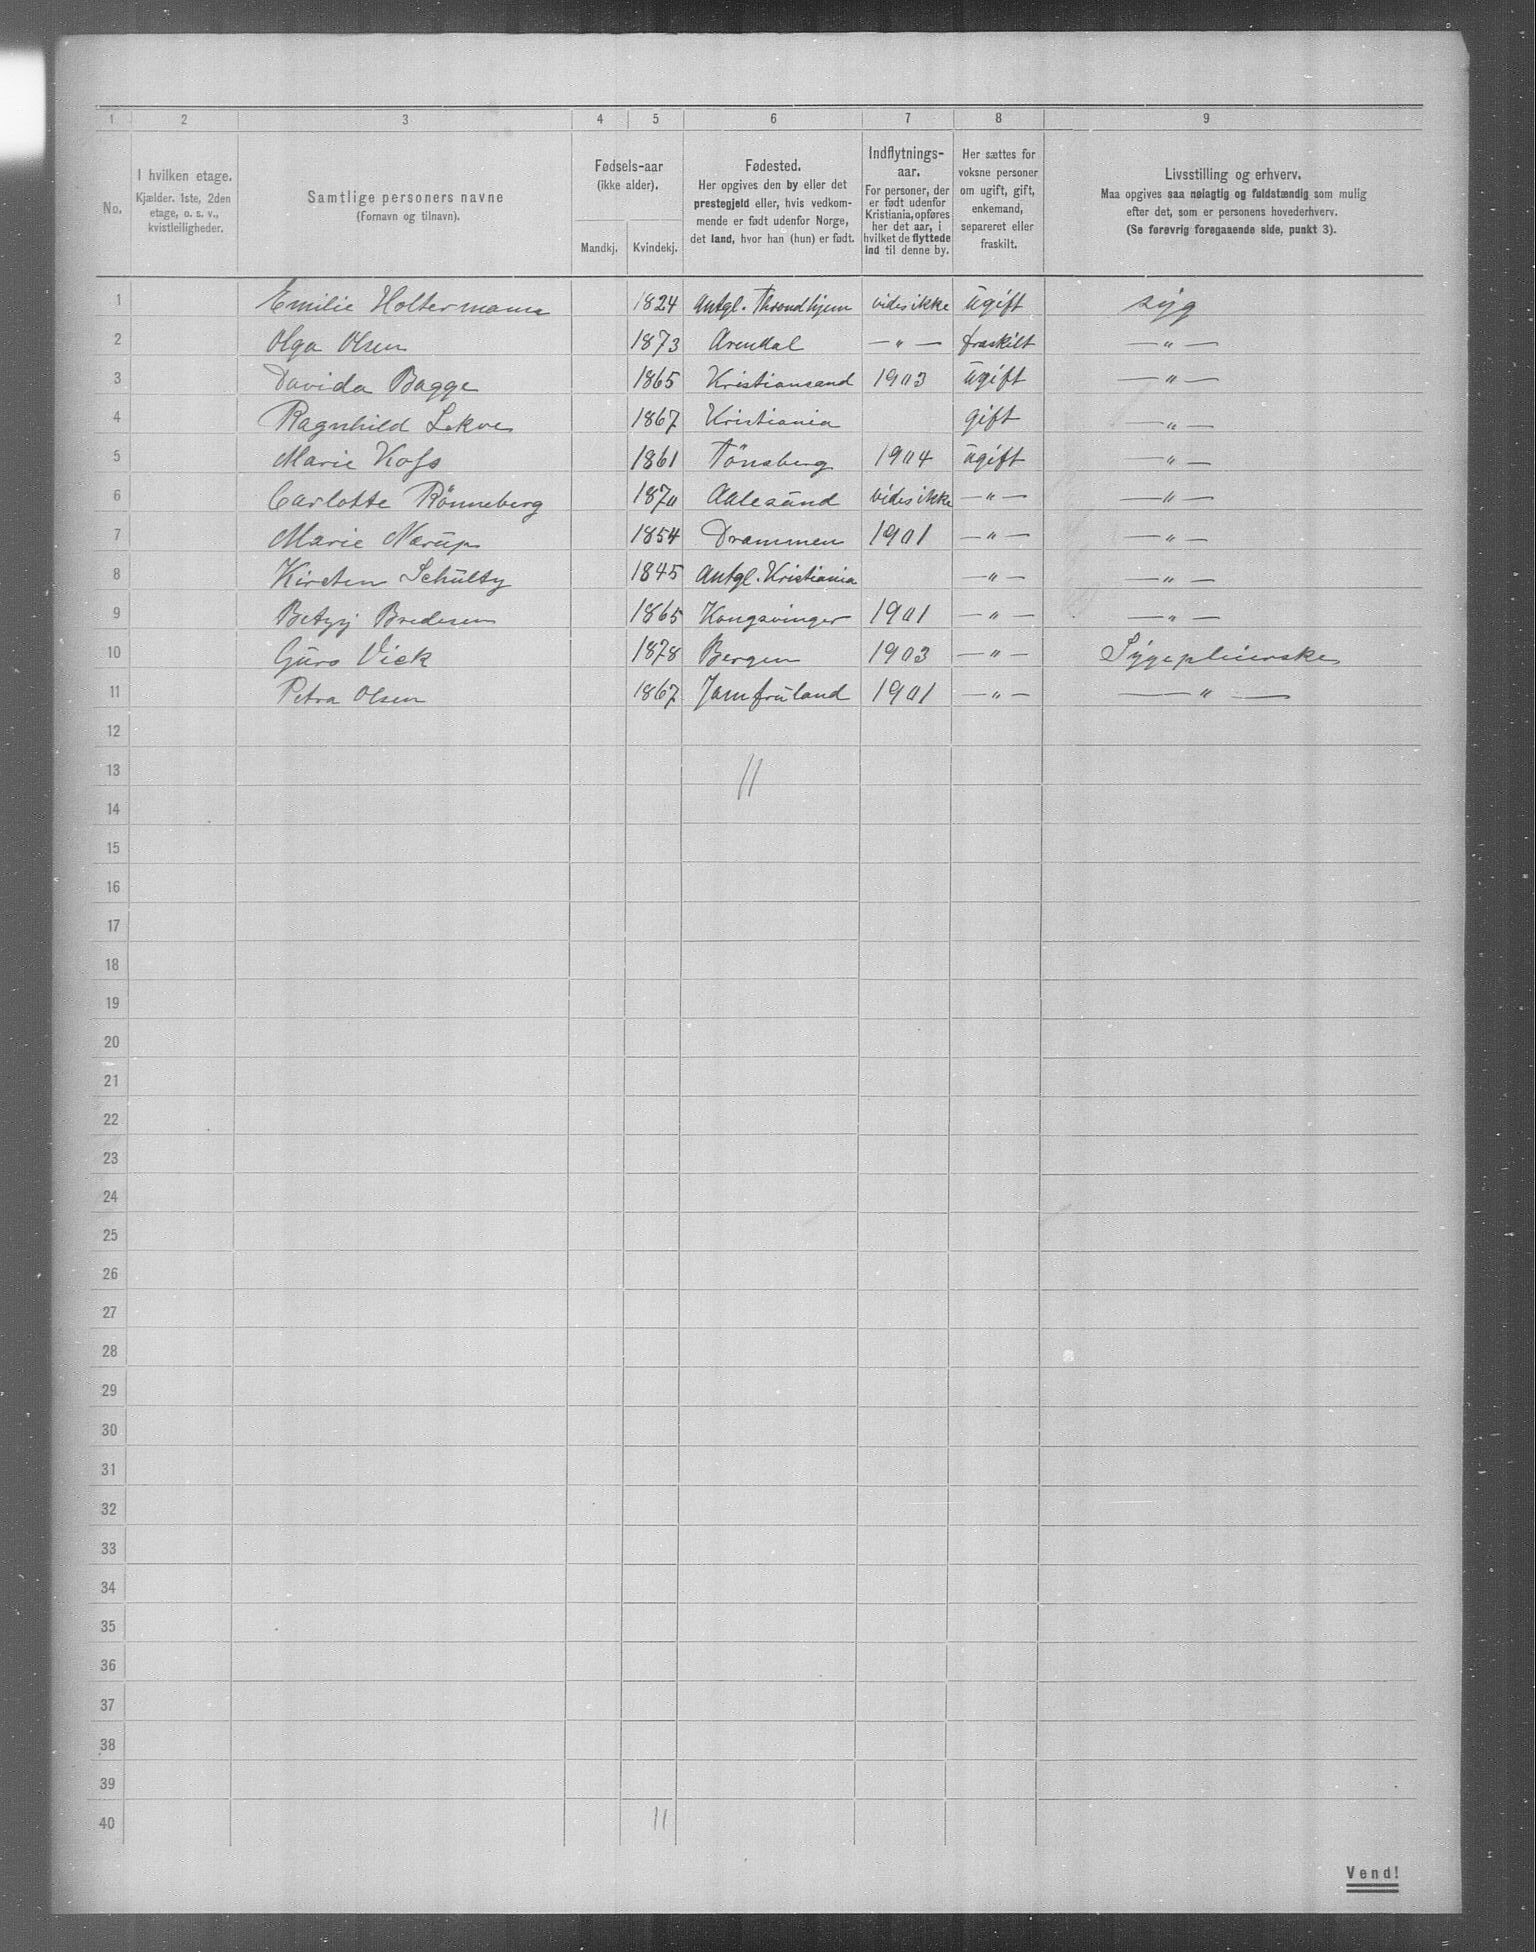 1 2 3 4 5 6 7 8 9
No.
I hvilken etage.
Kjælder. 1ste, 2den
etage, o. s. v.,
kvistleiligheder.
Samtlige personers navne
(Fornavn og tilnavn).
Fødsels-aar
(ikke alder).
Mandkj. Kvindekj.
Fødested.
Her opgives den by eller det
prestegjeld eller, hvis vedkom-
mende er født udenfor Norge,
det land, hvor han (hun) er født.
Indflytnings-
aar.
For personer, der
er født udenfor
Kristiania, opføres
her det aar, i
hvilket de flyttede
ind til denne by.
Her sættes for
voksne personer
om ugift, gift,
enkemand,
separeret eller
fraskilt.
Livsstilling og erhverv.
Maa opgives saa nøiagtig og fuldstændig som mulig
efter det, som er personens hovederhverv.
(Se forøvrig foregaaende side, punkt 3).
1 Emilie Holtermann 1824 Antgl. Throndhjem vides ikke ugift syg
2 Olga Olsen 1873 Arendal — " — fraskilt — " —
3 Davida Bagge 1865 Kristiansand 1903 ugift — " —
4 Ragnhild Lekve 1867 Kristiania gift — " —
5 Marie 1861 Tönsberg 1904 ugift — " —
6 Carlotte Rönneberg 1870 Aalesund vides ikke — " — — " —
7 Marie Narup 1854 Drammen 1901 — " — — " —
8 Kirsten Schultz 1845 Antgl. Kristiania — " — — " —
9 Betzy Bredesen 1865 Kongsvinger 1901 — " — — " —
10 Guro Vick 1878 Bergen 1903 — " — Sygepleierske
11 Petra Olsen 1867 Jomfruland 1901 — " — — " —
12
13 11
14
15
16
17
18
19
20
21
22
23
24
25
26
27
28
29
30
31
32
33
34
35
36
37
38
39
40 11
Vend!